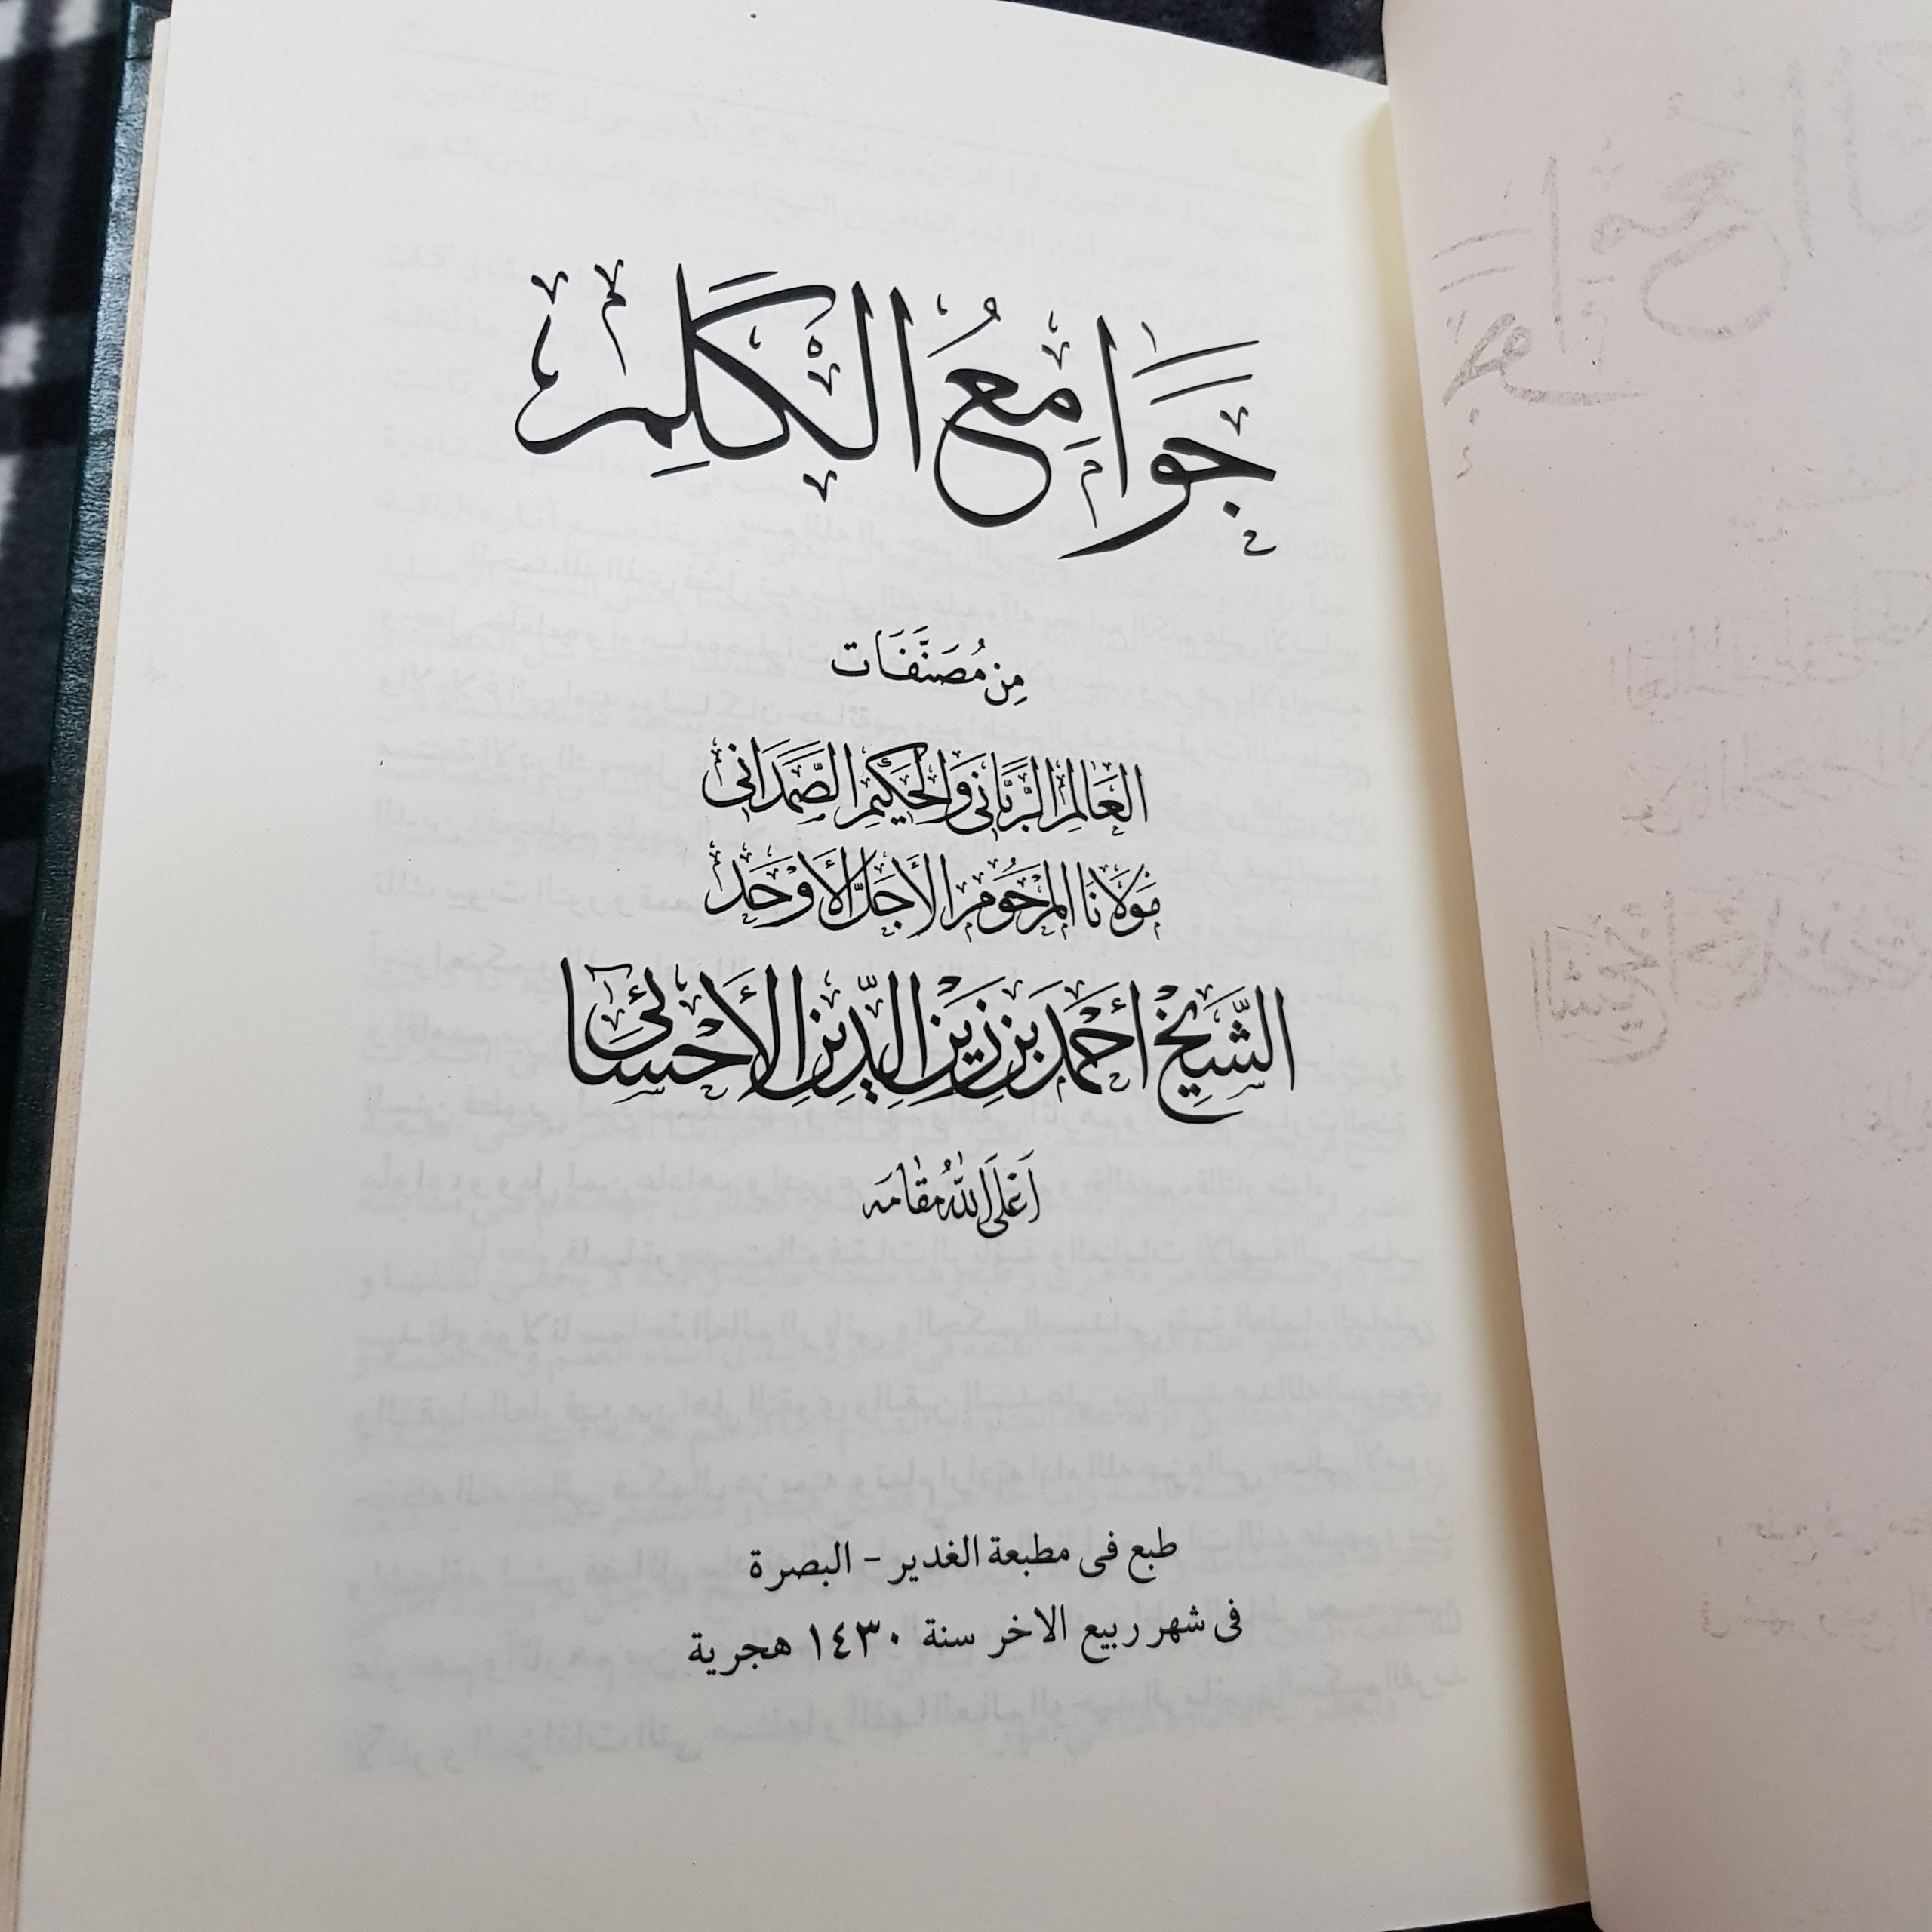 جَوَامِعُ الْكَلِمِ
مِن مُصَنَّفَات
العَالِمِ الرَّبَّانِي وَالحَكِيمِ الصَّمَدَانِي
مَوْلَانَا المَرْحُومِ الأَجَلِّ الأَوْحَدِ
الشَّيْخِ أَحْمَدَ بنِ زَيْنِ الدِّينِ الأَحْسَائِي
أَعْلَى اللهُ مَقَامَه
طبع فى مطبعة الغدير - البصرة
فى شهر ربيع الاخر سنة ١٤٣٠ هجرية